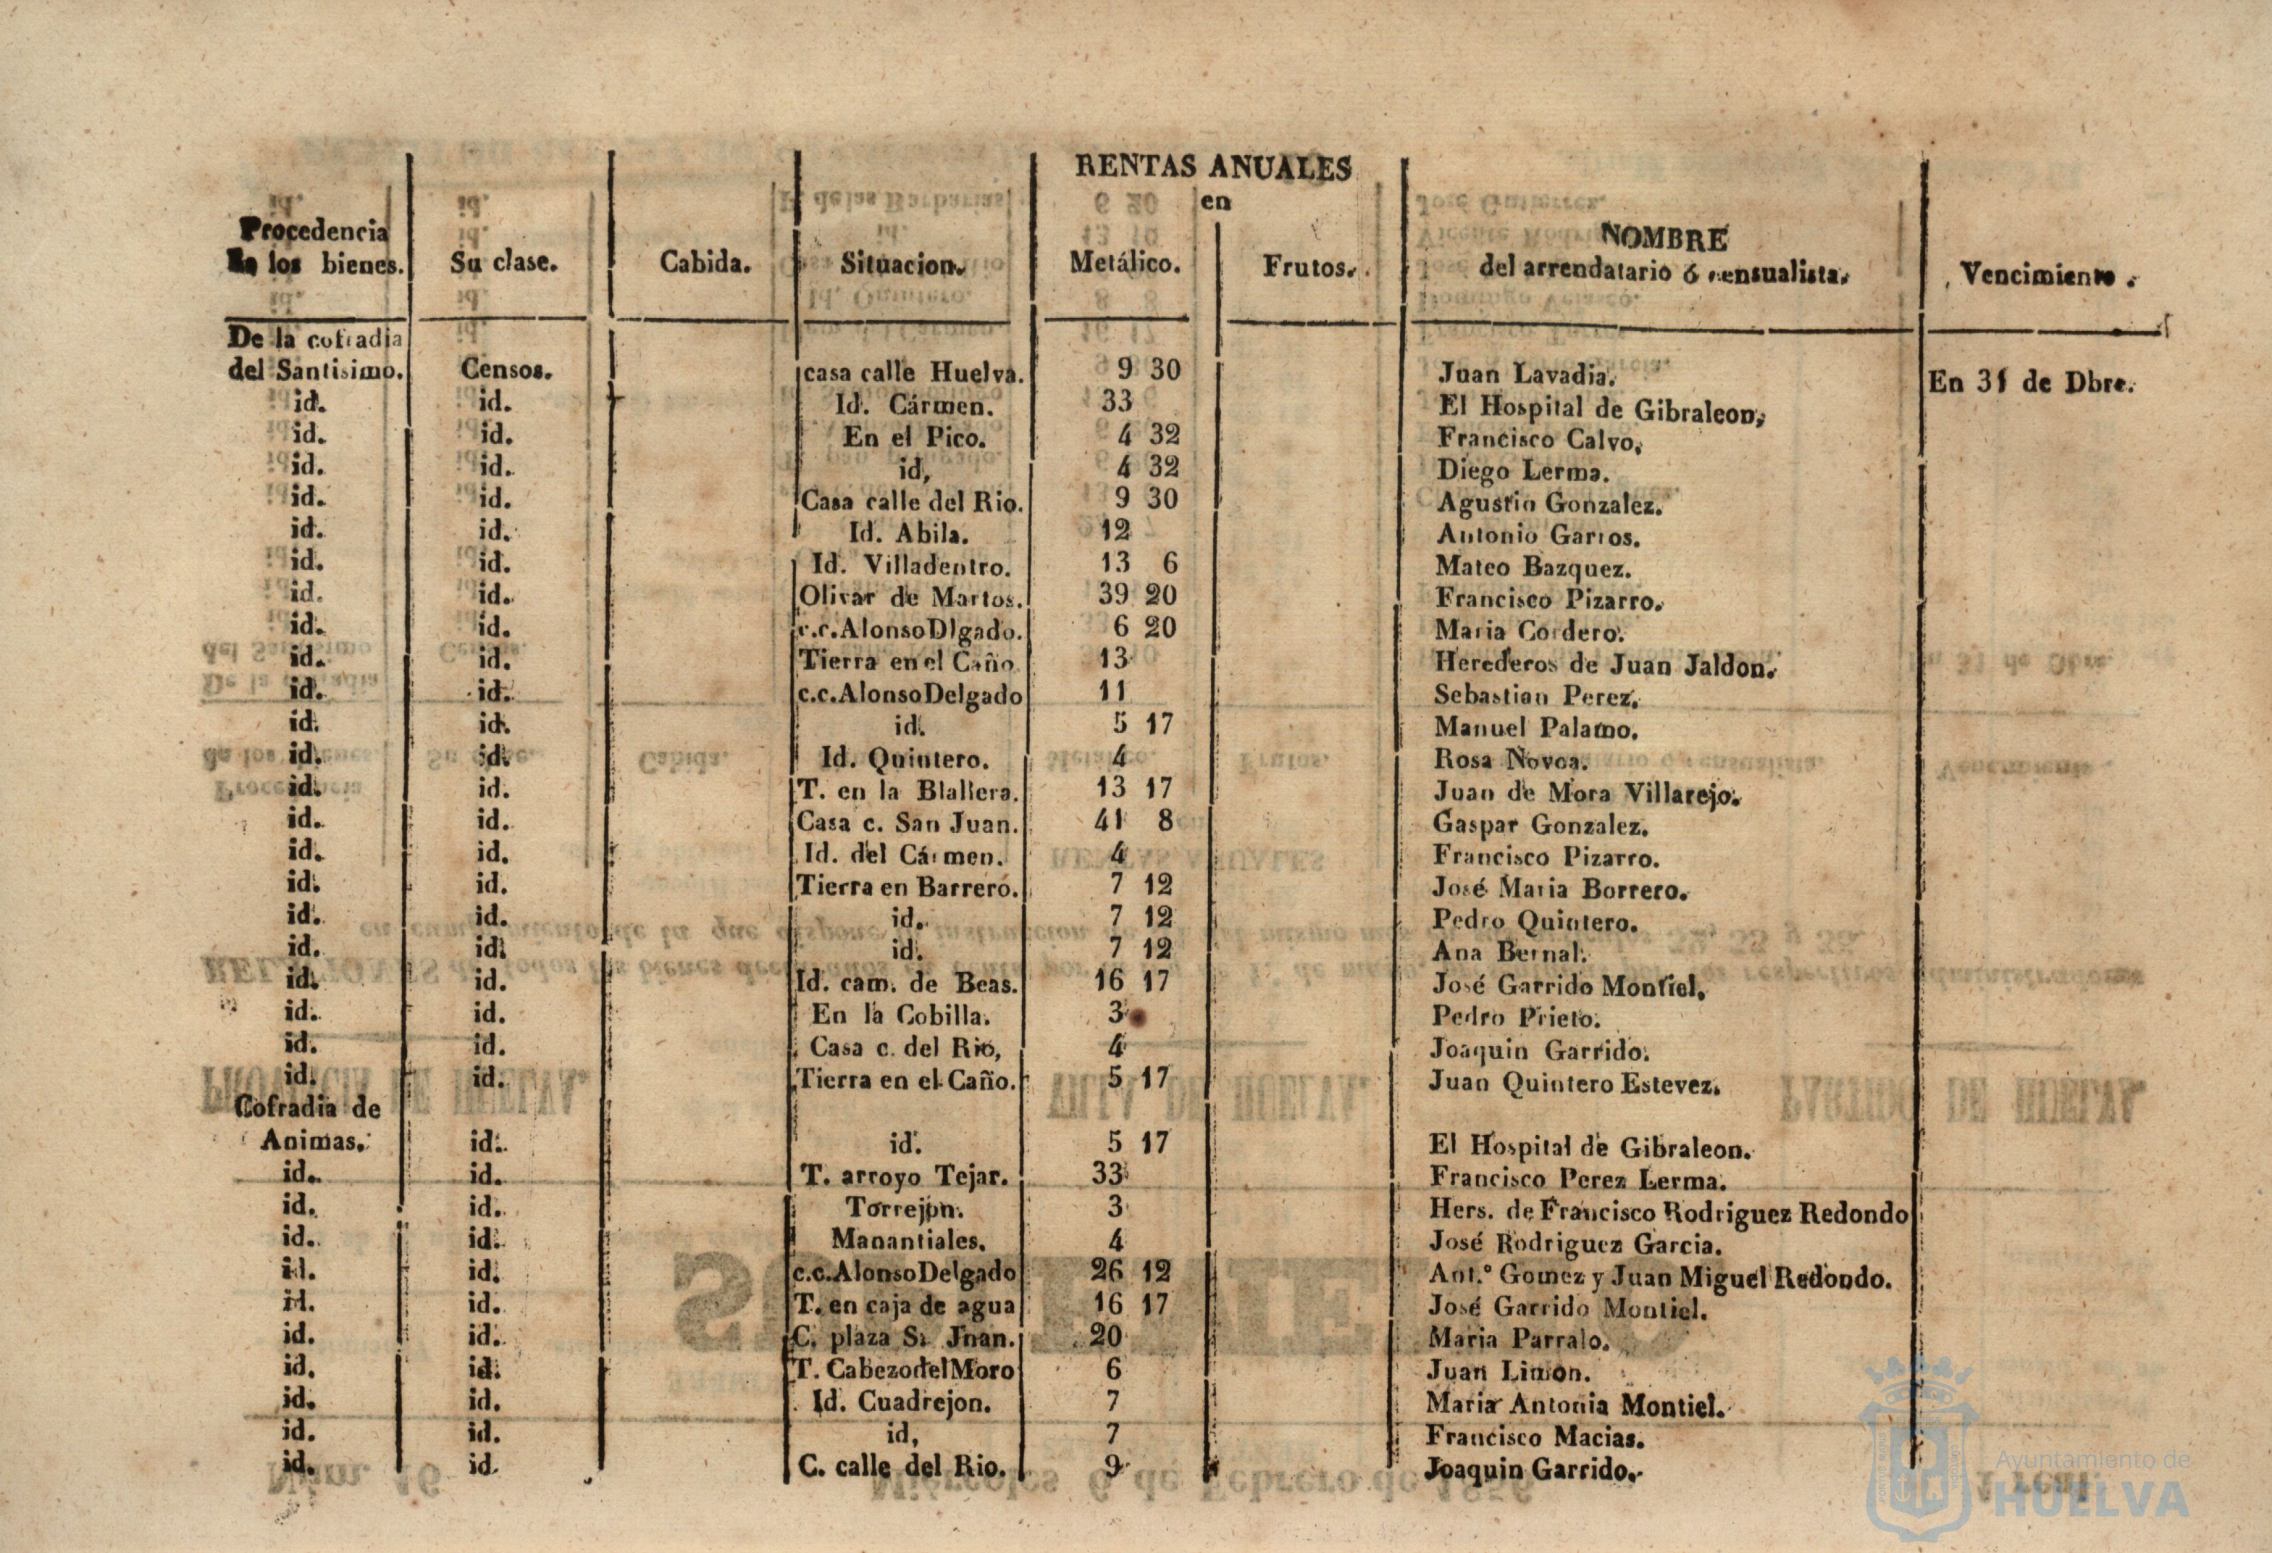 RENTAS ANUALES
en
Procedencia
de los bienes. Su clase. Cabida. Situacion. Metálico. Frutos. NOMBRE
del arrendatario ó censualista. Vencimiento.
De la cofradia
del Santisimo. Censos. casa calle Huelva. 9 30 Juan Lavadia. En 31 de Dbre.
id. id. Id. Cármen. 33 El Hospital de Gibraleon,
id. id. En el Pico. 4 32 Francisco Calvo,
id. id. id, 4 32 Diego Lerma.
id. id. Casa calle del Rio. 9 30 Agustin Gonzalez.
id. id. Id. Abila. 12 Antonio Garros.
id. id. Id. Villadentro. 13 6 Mateo Bazquez.
id. id. Olivar de Martos. 39 20 Francisco Pizarro.
id. id. c.c.AlonsoDlgado. 6 20 Maria Cordero.
id. id. Tierra en el Caño 13 Herederos de Juan Jaldon.
id. id. c.c.AlonsoDelgado 11 Sebastian Perez.
id. id. id. 5 17 Manuel Palamo.
id. id. Id. Quintero. 4 Rosa Novoa.
id. id. T. en la Blallera. 13 17 Juan de Mora Villarejo.
id. id. Casa c. San Juan. 41 8 Gaspar Gonzalez.
id. id. Id. del Cármen. 4 Francisco Pizarro.
id. id. Tierra en Barrero. 7 12 José Maria Borrero.
id. id. id. 7 12 Pedro Quintero.
id. id. id. 7 12 Ana Bernal.
id. id. Id. cam. de Beas. 16 17 José Garrido Montiel.
id. id. En la Cobilla. 3 Pedro Prieto.
id. id. Casa c. del Rio, 4 Joaquin Garrido.
id. id. Tierra en el Caño. 5 17 Juan Quintero Estevez.
Cofradia de
Animas. id. id. 5 17 El Hospital de Gibraleon.
id. id. T. arroyo Tejar. 33 Francisco Perez Lerma.
id. id. Torrejon. 3 Hers. de Francisco Rodriguez Redondo
id. id. Manantiales. 4 José Rodriguez Garcia.
id. id. c.c.AlonsoDelgado 26 12 Ant.º Gomez y Juan Miguel Redondo.
id. id. T. en caja de agua 16 17 José Garrido Montiel.
id. id. C. plaza S. Jnan. 20 Maria Parralo.
id. id. T. CabezodelMoro 6 Juan Limon.
id. id. Id. Cuadrejon. 7 Maria Antonia Montiel.
id. id. id, 7 Francisco Macias.
id. id C. calle del Rio. 9 Joaquin Garrido.
Ayuntamiento de
HUELVA